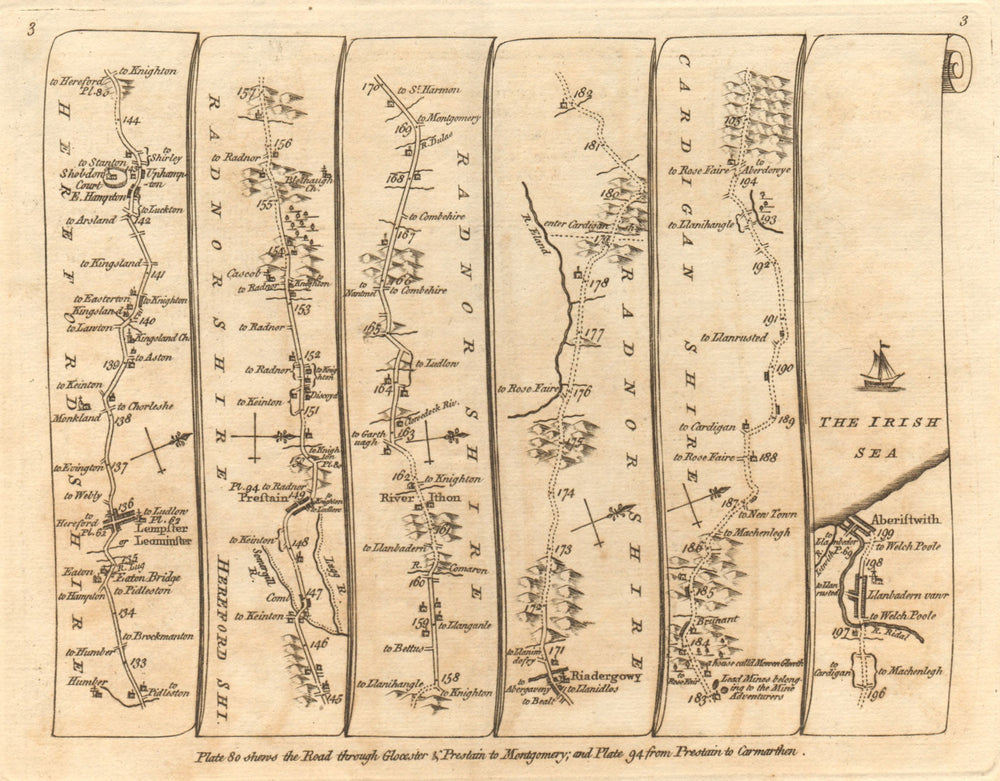 3
3
to Knighton
to Hereford
Pl. 80
144
to Stanton
to Shirley
Shobdon
Court
Uphamp-
ton
E. Hampton
to Luckton
to Arsland
142
to Kingsland
141
to Easterton
to Knighton
Kingsland
140
to Lawton
Kingsland Ch.
to Aston
139
to Keinton
to Chorleshe
Monkland
138
to Evington
137
to Webly
136
to Ludlow
Pl. 62
to Hereford
Pl. 62
Lempster
or
Leominster
135
R. Lug
Eaton
Eaton Bridge
to Pidleston
to Hampton
134
to Brockmanton
to Humber
133
Humber
to Pidleston
HEREFORDSHIRE
157
156
to Radnor
Blethaugh
Ch.
155
154
Cascob
to Radnor
to Knighton
153
to Radnor
152
to Radnor
to Knighton
Discoyd
to Keinton
151
to Knighton
Pl. 80
Pl. 94 to Radnor
Prestain
149
to Knighton
to Ludlow
to Keinton
148
Somergill
R.
Lugg R.
Comb
147
to Keinton
146
145
RADNORSHIRE
HEREFRD SHI
170
to St. Harmon
169
to Montgomery
R. Dulas
168
to Combehire
167
166
to Nantmel
to Combehire
165
to Ludlow
164
Clowedock Riv.
163
to Garth
uagh
162
to Knighton
River Ithon
161
to Llanbadern
R.
Comaron
160
159
to Llanganle
to Bettus
158
to Llanihangle
to Knighton
RADNOR SHIRE
182
181
180
R. Eland
enter Cardigan
179
178
177
to Rose Faire
176
175
174
173
172
to Llanim
dofry
171
Riadergowy
to
Abergavany
to Llanidles
to Bealt
RADNOR SHIRE
195
to Rose Faire
to
Aberdovye
194
to Llanihangle
193
192
191
to Llanrusted
190
189
to Cardigan
to Rose Faire
188
187
to New Town
to Machenlegh
186
185
Brunant
184
a House call'd Mowen Glowth
to
Rose Fair
183
Lead Mines belong-
ing to the Mine
Adventurers
CARDIGAN SHIRE
THE IRISH
SEA
Aberistwith
199
Llanbeder
P. 69
to Welch Poole
R.
Istwith
198
to Llan
rusted
Llanbadern vawr
to Welch Poole
197
R. Ridal
to
Cardigan
to Machenlegh
196
Plate 80 shews the Road through Glocester & Prestain to Montgomery; and Plate 94 from Prestain to Carmarthen.